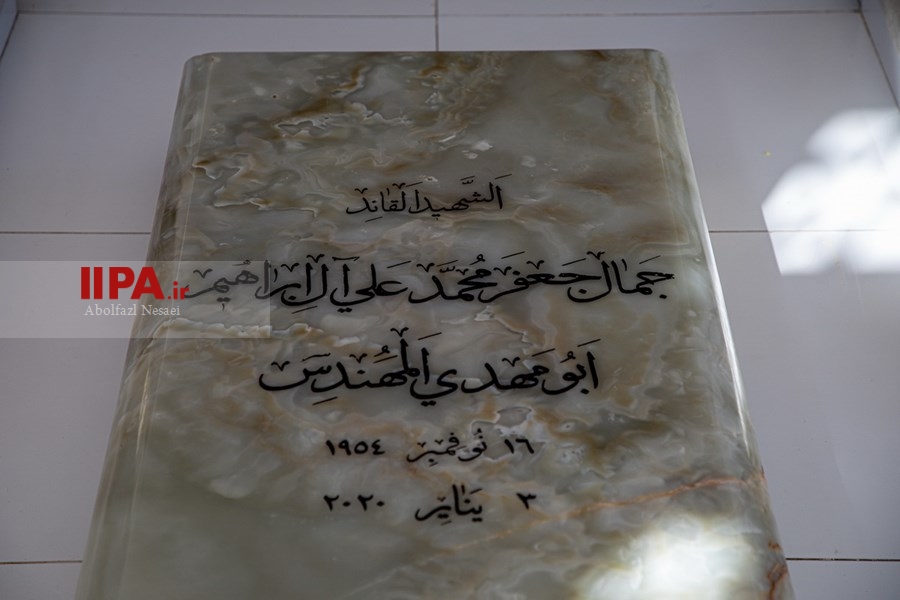 الشهيد القائد
جمال جعفر محمد علي آل إبراهيم
أبو مهدي المهندس
١٦ نوفمبر ١٩٥٤
٣ يناير ٢٠٢٠
IIPA.ir
Abolfazl Nesaei